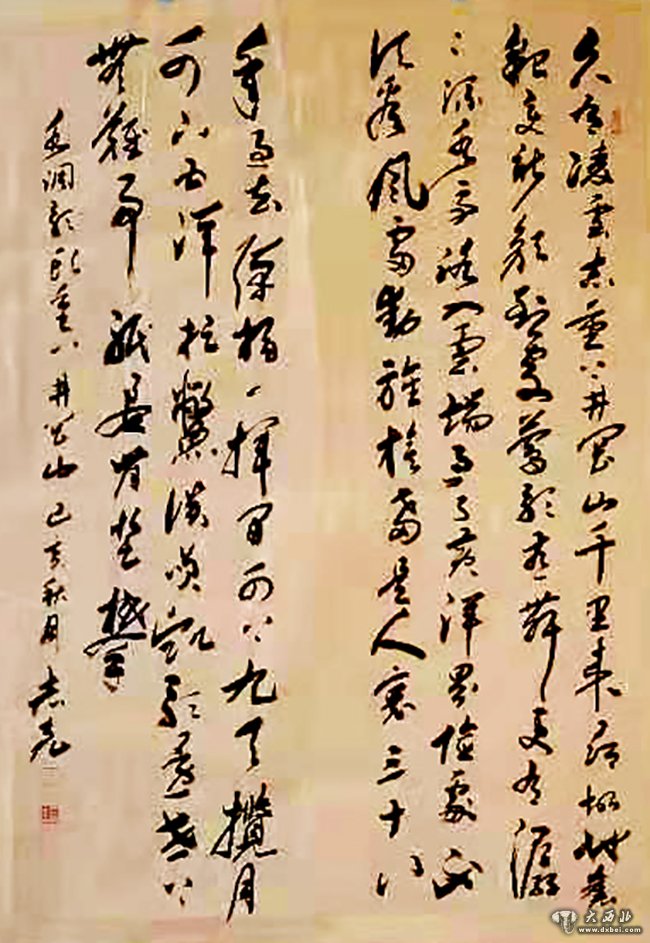 久有凌雲志重上井岡山千里来尋故地舊
貌变新颜到處鶯歌燕舞更有潺
潺流水高路入雲端过了黄洋界險處不
须看風雷動旌旗奋是人寰三十八
年过去弹指一揮间可上九天攬月
可下五洋捉鱉谈笑凯歌還世上
無難事祇要肯登攀
水调歌頭重上井岡山 己亥秋月
大西北
www.dxbei.com